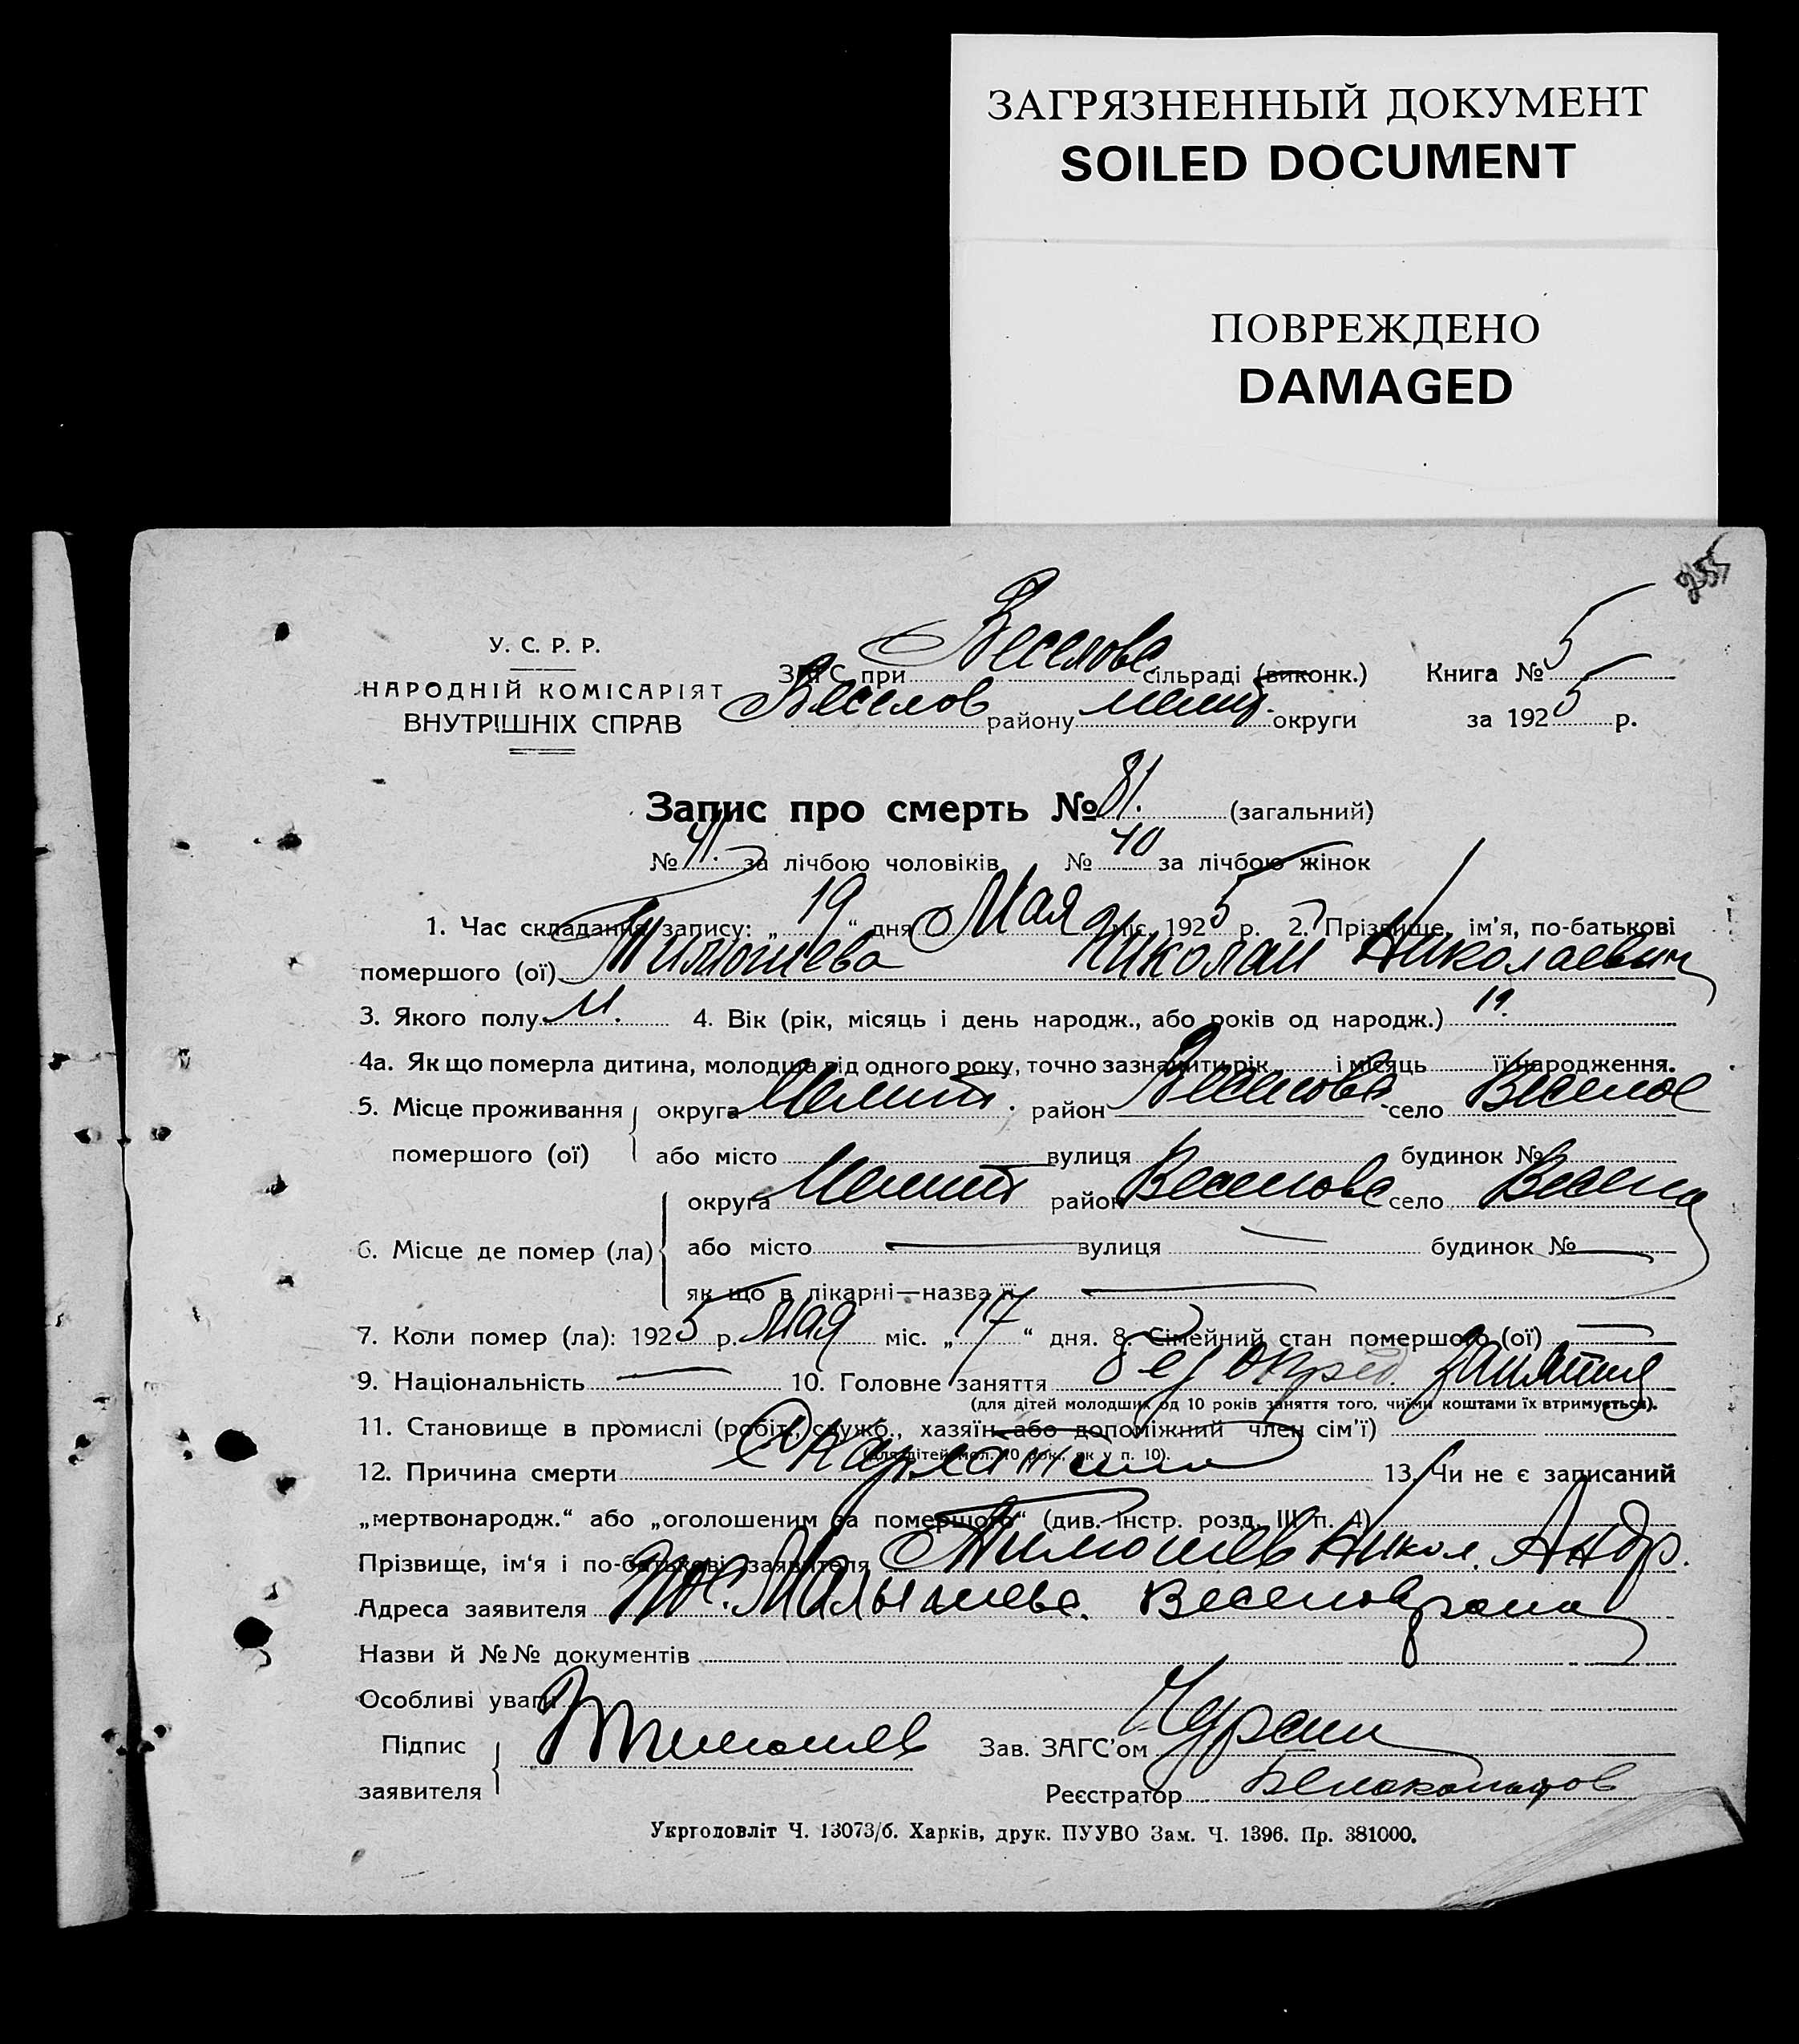 ЗАГРЯЗНЕННЫЙ ДОКУМЕНТ
SOILED DOCUMENT
ПОВРЕЖДЕНО
DAMAGED
У. С. Р. Р.
НАРОДНІЙ КОМІСАРІЯТ
ВНУТРІШНІХ СПРАВ
ЗАГС при Веселовс сільраді (виконк.) Книга № 5
Веселов району мелит. округи за 1925 р.
Запис про смерть № 81. (загальний)
№ 41. за лічбою чоловіків № 40 за лічбою жінок
1. Час складання запису: „19“ дня Мая міс. 1925 р. 2. Прізвище, ім'я, по-батькові
помершого (ої) Тимошева Николай Николаевич
3. Якого полу М. 4. Вік (рік, місяць і день народж., або років од народж.)
4а. Як що померла дитина, молодша від одного року, точно зазначити рік і місяць її народження.
5. Місце проживання округа Мелит. район Веселовс село Веселое
помершого (ої) або місто вулиця будинок №
округа Мелит район Веселовс село
6. Місце де помер (ла) або місто — вулиця — будинок № —
як що в лікарні—назва її —
7. Коли помер (ла): 1925 р. Мая міс. „17“ дня. 8. Сімейний стан помершого (ої) —
9. Національність — 10. Головне заняття без опред. занятия
(для дітей молодших од 10 років заняття того, чиїми коштами їх втримується).
11. Становище в промислі (робітн., служб., хазяїн або допоміжний член сім'ї)
(для дітей мол. 10 рок., як у п. 10).
12. Причина смерти Скарлатина 13. Чи не є записаний
„мертвонародж.“ або „оголошеним за помершого“ (див. інстр. розд. III п. 4)
Прізвище, ім'я і по-батькові заявителя Тимошев Никол. Андр.
Адреса заявителя пос. Малышевс. Веселов района
Назви й №№ документів
Особливі уваги
Підпис Тимошев Зав. ЗАГС'ом
заявителя Реєстратор Белокопытов
Укрголовліт Ч. 13073/б. Харків, друк. ПУУВО Зам. Ч. 1396. Пр. 381000.